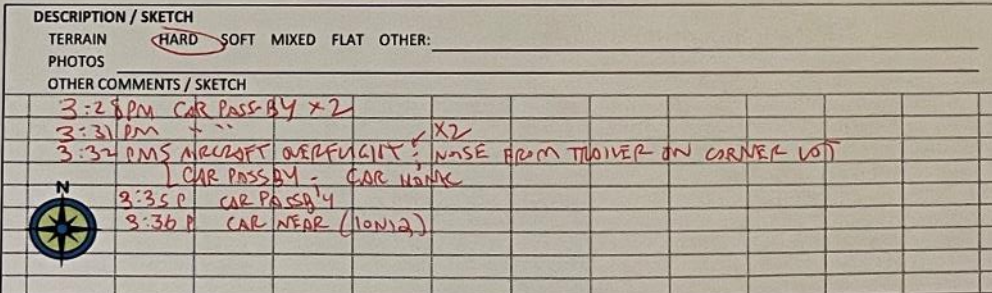 DESCRIPTION / SKETCH
TERRAIN HARD SOFT MIXED FLAT OTHER:
PHOTOS
OTHER COMMENTS / SKETCH
3:28 PM CAR PASS-BY x2
3:31 PM + " x2
3:32 PM AIRCRAFT OVERFLIGHT ; NOISE FROM TRAILER ON CORNER LOT
CAR PASSBY - CAR HONK
3:35 P CAR PASSBY
3:36 P CAR NEAR
N